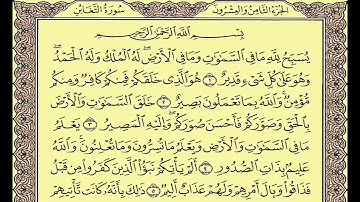 سُورَةُ التَّغَابُنِ الجُزْءُ الثَّامِنُ وَالعِشْرُونَ
بِسْمِ اللَّهِ الرَّحْمَٰنِ الرَّحِيمِ
يُسَبِّحُ لِلَّهِ مَا فِي السَّمَٰوَٰتِ وَمَا فِي الْأَرْضِ لَهُ الْمُلْكُ وَلَهُ الْحَمْدُ
وَهُوَ عَلَىٰ كُلِّ شَيْءٍ قَدِيرٌ ١ هُوَ الَّذِي خَلَقَكُمْ فَمِنكُمْ كَافِرٌ وَمِنكُم
مُّؤْمِنٌ وَاللَّهُ بِمَا تَعْمَلُونَ بَصِيرٌ ٢ خَلَقَ السَّمَٰوَٰتِ وَالْأَرْضَ
بِالْحَقِّ وَصَوَّرَكُمْ فَأَحْسَنَ صُوَرَكُمْ وَإِلَيْهِ الْمَصِيرُ ٣ يَعْلَمُ
مَا فِي السَّمَٰوَٰتِ وَالْأَرْضِ وَيَعْلَمُ مَا تُسِرُّونَ وَمَا تُعْلِنُونَ وَاللَّهُ
عَلِيمٌ بِذَاتِ الصُّدُورِ ٤ أَلَمْ يَأْتِكُمْ نَبَؤُا الَّذِينَ كَفَرُوا مِن قَبْلُ
فَذَاقُوا وَبَالَ أَمْرِهِمْ وَلَهُمْ عَذَابٌ أَلِيمٌ ٥ ذَٰلِكَ بِأَنَّهُ كَانَت تَّأْتِيهِمْ